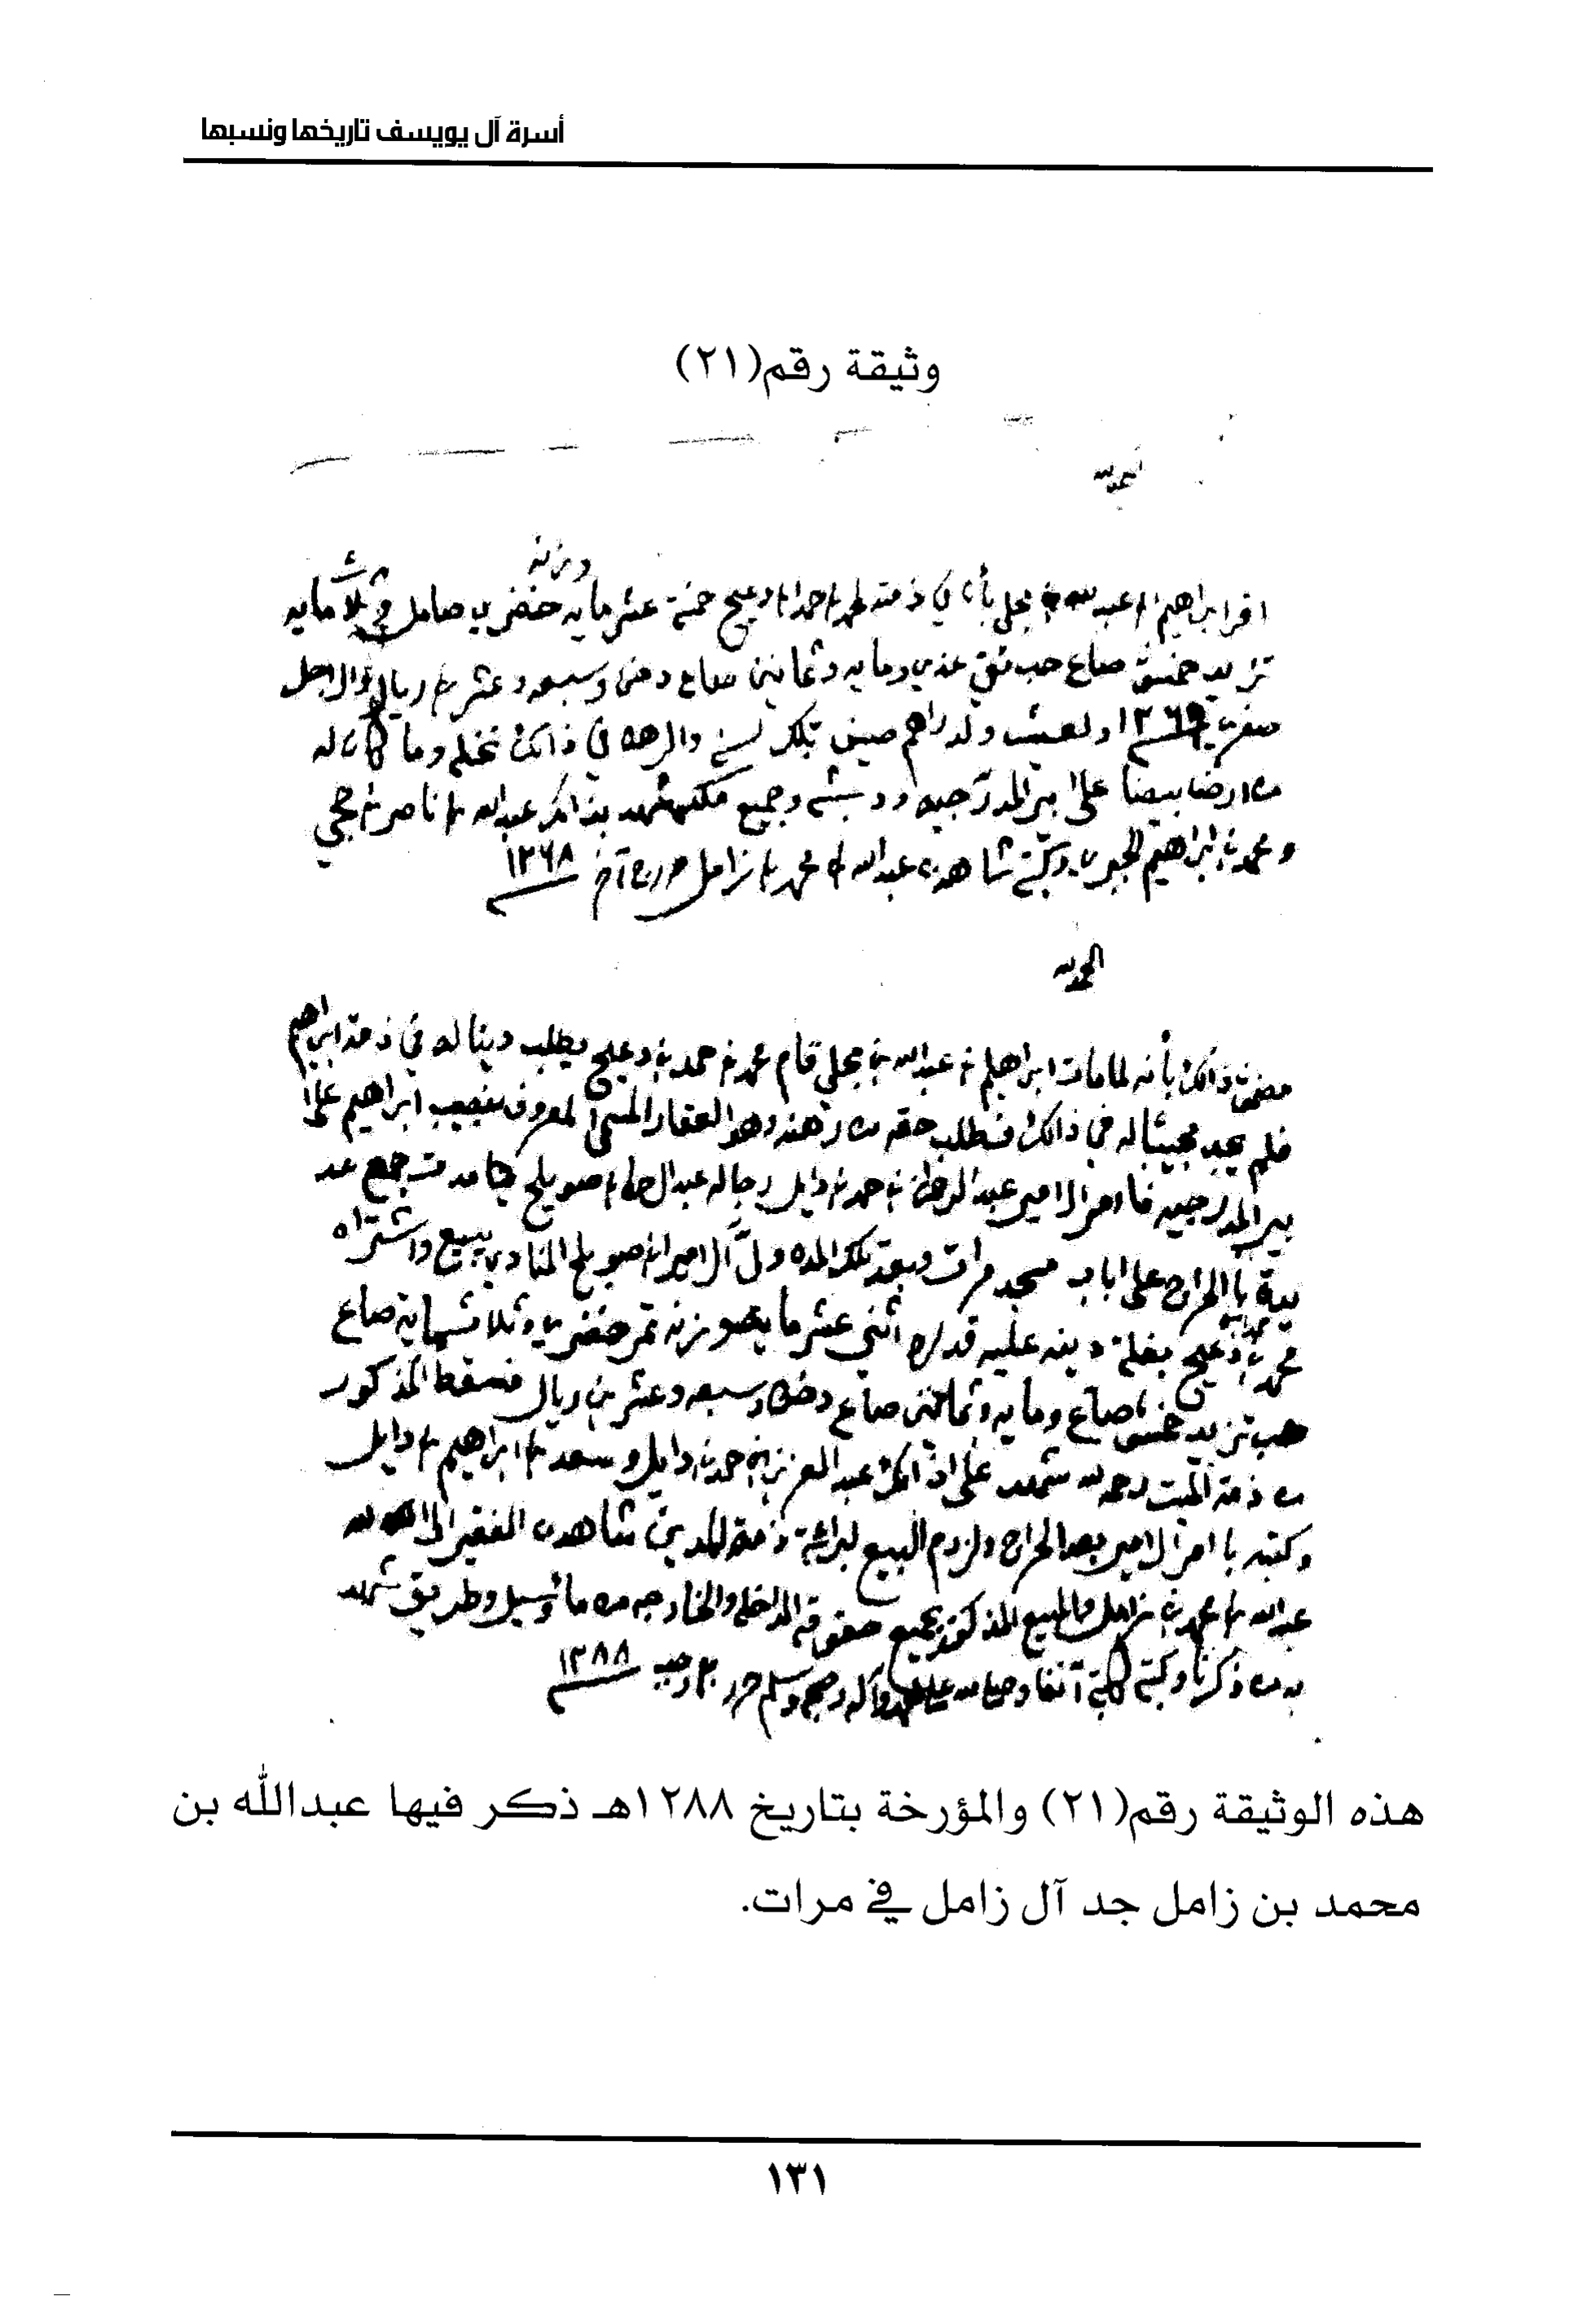 أسرة آل يويسف تاريخها ونسبها
وثيقة رقم(٢١)
الحمد لله
وزنه
اقر ابراهيم بن عبدالله بن مجلي بأن في ذمته لمحمد بن حمد بن دعيج خمسة عشر مايه خضري صامل وثلاثمايه
تزيد خمسين صاع حب نقي عذي ومايه وثمانين صاع دخن وسبعه وعشرين ريال والاجل
صفر ١٢٦٩ ولعيشت ولدراهم تلك السنه والرهن في ذالك نخله وما كان له
من ارض بيضا على بير المدرجيه وجميع ملكه شهد بذالك عبدالله بن ناصر بن حجي
ومحمد بن ابراهيم وكتبه شاهدا به عبدالله بن محمد بن زامل حرر ١٢٦٨
الحمد لله
مضمون ذالك بأنه لما مات ابراهيم بن عبدالله بن مجلي قام محمد بن حمد بن دعيج يطلب دينا له في ذمة ابراهيم
فلم يجد مجيبا له في ذالك فطلب حقه من رهنه وهو العقار المسمى المعروف بنصيب ابراهيم على
بير المدرجيه فا امر الامير عبدالرحمن بن حمد بن دايل رجاله عبدالرحمن بن صويلح
يا الحراج على اباب مسجد مرات وبعد تلك المده الامير بن صويلح المنادي يبيع واشتراه
محمد بن دعيج بغلة دينه عليه قدره اثني عشر مايه وزنه تمر خضري وثلاثماية صاع
حب تزيد خمسين صاع ومايه وثمانين صاع دخن وسبعه وعشرين ريال فسقط المذكور
من ذمة الميت رحمه الله شهد على ذالك عبدالعزيز بن حمد بن دايل وسعد بن ابراهيم بن دايل
وكتبه با امر الامير بعد الحراج ولزوم البيع لبرائة ذمة المدين شاهدا به الفقير الى الله
عبدالله بن محمد بن زامل والمبيع المذكور بجميع حقوقه الداخله والخارجه من ماء وسيل وطريق شهد
به من ذكرنا وكتبه كاتبه آنفا وصلى الله على محمد وآله وصحبه وسلم حرر رجب ١٢٨٨
هذه الوثيقة رقم(٢١) والمؤرخة بتاريخ ١٢٨٨هـ ذكر فيها عبدالله بن
محمد بن زامل جد آل زامل في مرات.
١٣١